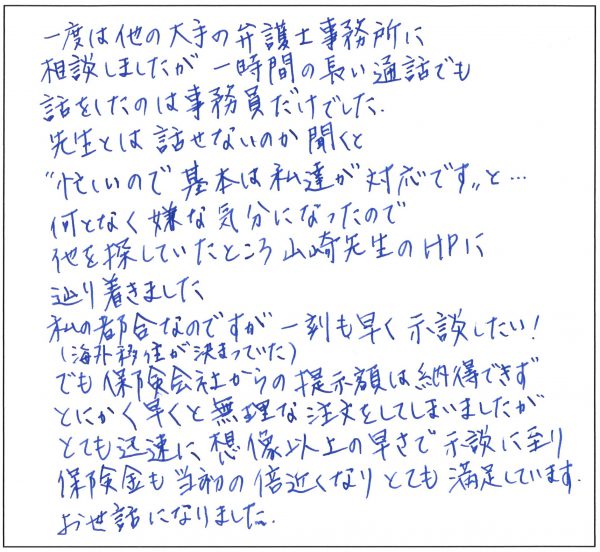 一度は他の大手の弁護士事務所に
相談しましたが 一時間の長い通話でも
話をしたのは事務員だけでした.
先生とは話せないのか聞くと
"忙しいので基本は私達が対応です"と…
何となく嫌な気分になったので
他を探していたところ山崎先生のHPに
辿り着きました
私の都合なのですが一刻も早く示談したい!
(海外移住が決まっていた)
でも保険会社からの提示額は納得できず
とにかく早くと無理な注文をしてしまいましたが
とても迅速に想像以上の早さで示談に至り
保険金も当初の倍近くなりとても満足しています.
お世話になりました.